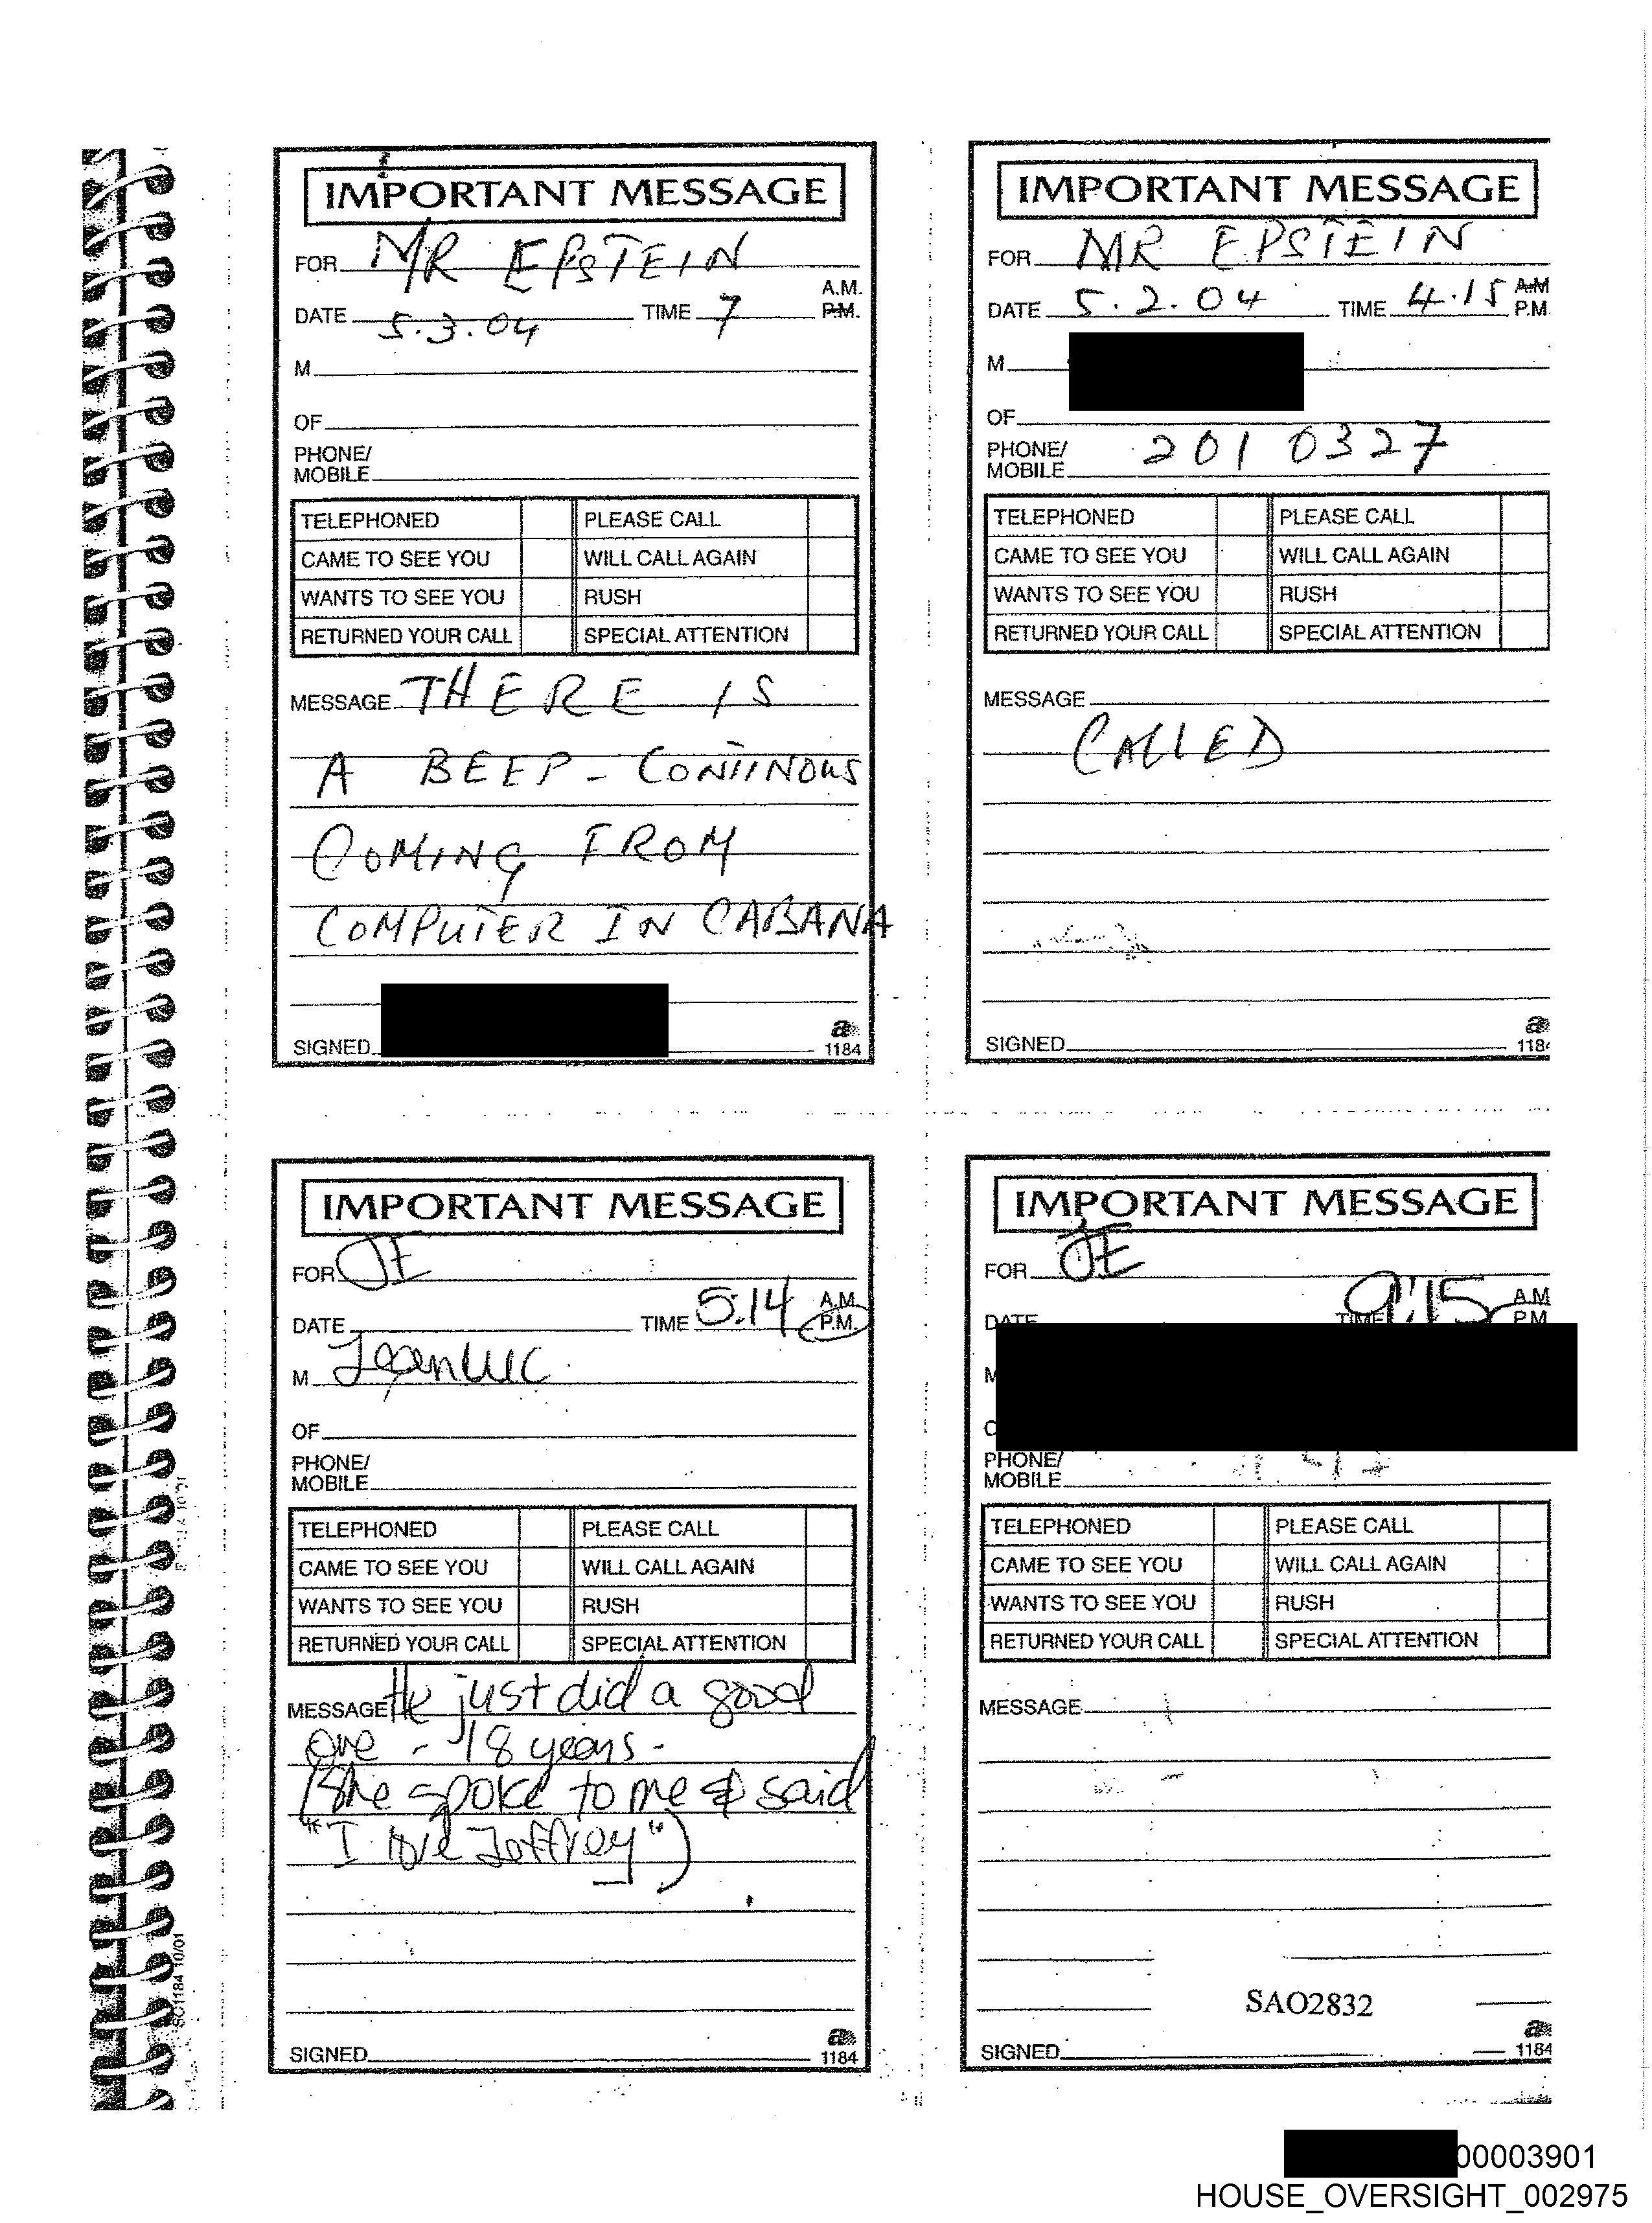 IMPORTANT MESSAGE
FOR MR EPSTEIN
A.M.
DATE 5.3.04 TIME 7 P.M.
M
OF
PHONE/
MOBILE
TELEPHONED PLEASE CALL
CAME TO SEE YOU WILL CALL AGAIN
WANTS TO SEE YOU RUSH
RETURNED YOUR CALL SPECIAL ATTENTION
MESSAGE THERE IS
A BEEP - CONTINOUS
COMING FROM
COMPUTER IN CABANA
SIGNED
a
1184
IMPORTANT MESSAGE
FOR MR EPSTEIN
DATE 5.2.04 TIME 4.15 A.M
P.M.
M
OF
PHONE/
MOBILE 201 0327
TELEPHONED PLEASE CALL
CAME TO SEE YOU WILL CALL AGAIN
WANTS TO SEE YOU RUSH
RETURNED YOUR CALL SPECIAL ATTENTION
MESSAGE
CALLED
SIGNED
a
118
IMPORTANT MESSAGE
FOR JE
DATE TIME 5:14 A.M.
P.M.
M Jean Luc
OF
PHONE/
MOBILE
TELEPHONED PLEASE CALL
CAME TO SEE YOU WILL CALL AGAIN
WANTS TO SEE YOU RUSH
RETURNED YOUR CALL SPECIAL ATTENTION
MESSAGE He just did a good
one - 18 years -
(she spoke to me & said
"I love Jeffrey")
SIGNED
a
1184
IMPORTANT MESSAGE
FOR JE
DATE TIME 9:15 A.M
P.M
M
PHONE/
MOBILE
TELEPHONED PLEASE CALL
CAME TO SEE YOU WILL CALL AGAIN
WANTS TO SEE YOU RUSH
RETURNED YOUR CALL SPECIAL ATTENTION
MESSAGE
SAO2832
SIGNED
a
1184
SC1184 10/01
00003901
HOUSE_OVERSIGHT_002975